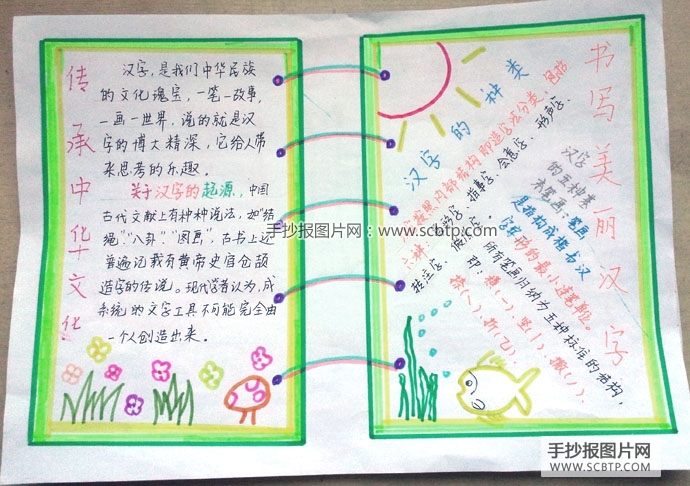 传承中华文化
汉字，是我们中华民族
的文化瑰宝，一笔一故事，
一画一世界，说的就是汉
字的博大精深，它给人带
来思考的乐趣。
关于汉字的起源，中国
古代文献上有种种说法，如“结
绳”、“八卦”、“图画”，古书上还
普遍记载有黄帝史官仓颉
造字的传说。现代学者认为，成
系统的文字工具不可能完全由
一个人创造出来。
书写美丽汉字
汉字的种类
六种：
指事字、会意字、形声字、
转注字、假借字。
汉字
的五种基
本笔画：笔画
是指构成楷书汉
字字形的最小连笔单位。
所有笔画归纳为五种标准的结构，
即：横(一)、竖(丨)、撇(丿)、
捺(㇏)、折(乙)。
手抄报图片网：www.scbtp.com
手抄报图片网
WWW.SCBTP.COM